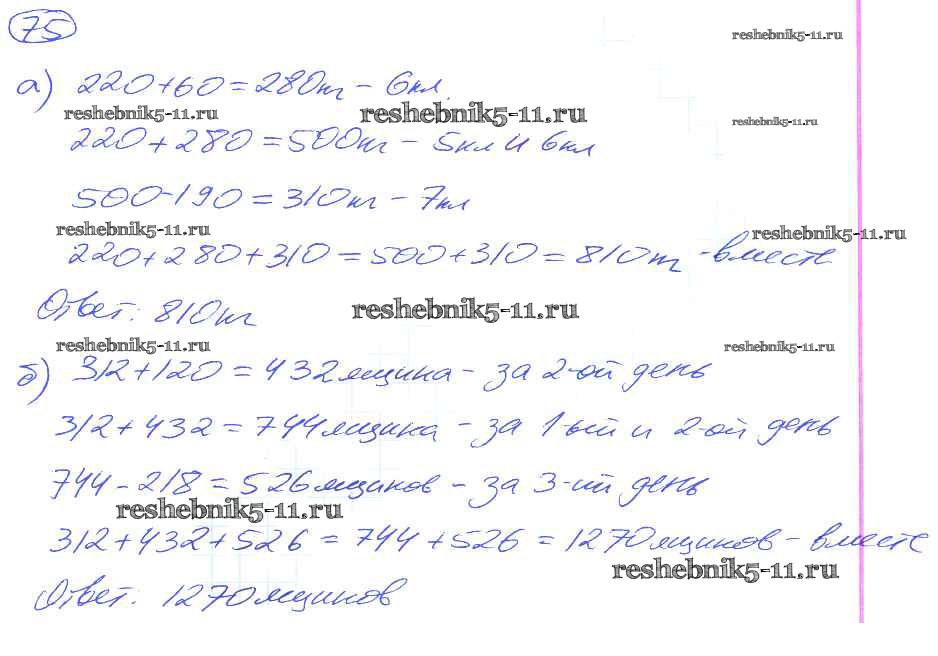 75
reshebnik5-11.ru
а) 220+60=280кг - 6кл.
reshebnik5-11.ru reshebnik5-11.ru reshebnik5-11.ru
220+280=500кг - 5кл и 6кл
500-190=310кг - 7кл
reshebnik5-11.ru reshebnik5-11.ru
220+280+310=500+310=810кг - вместе
Ответ: 810кг
reshebnik5-11.ru
reshebnik5-11.ru reshebnik5-11.ru
б) 312+120=432ящика - за 2-ой день
312+432=744ящика - за 1-ый и 2-ой день
744-218=526ящиков - за 3-ий день
reshebnik5-11.ru
312+432+526=744+526=1270ящиков - вместе
reshebnik5-11.ru
Ответ: 1270ящиков